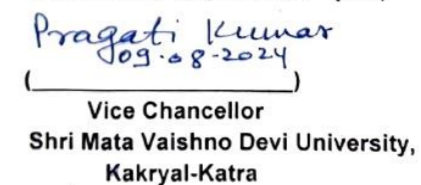 Pragati Kumar
09.08-2024
(____________________)
Vice Chancellor
Shri Mata Vaishno Devi University,
Kakryal-Katra